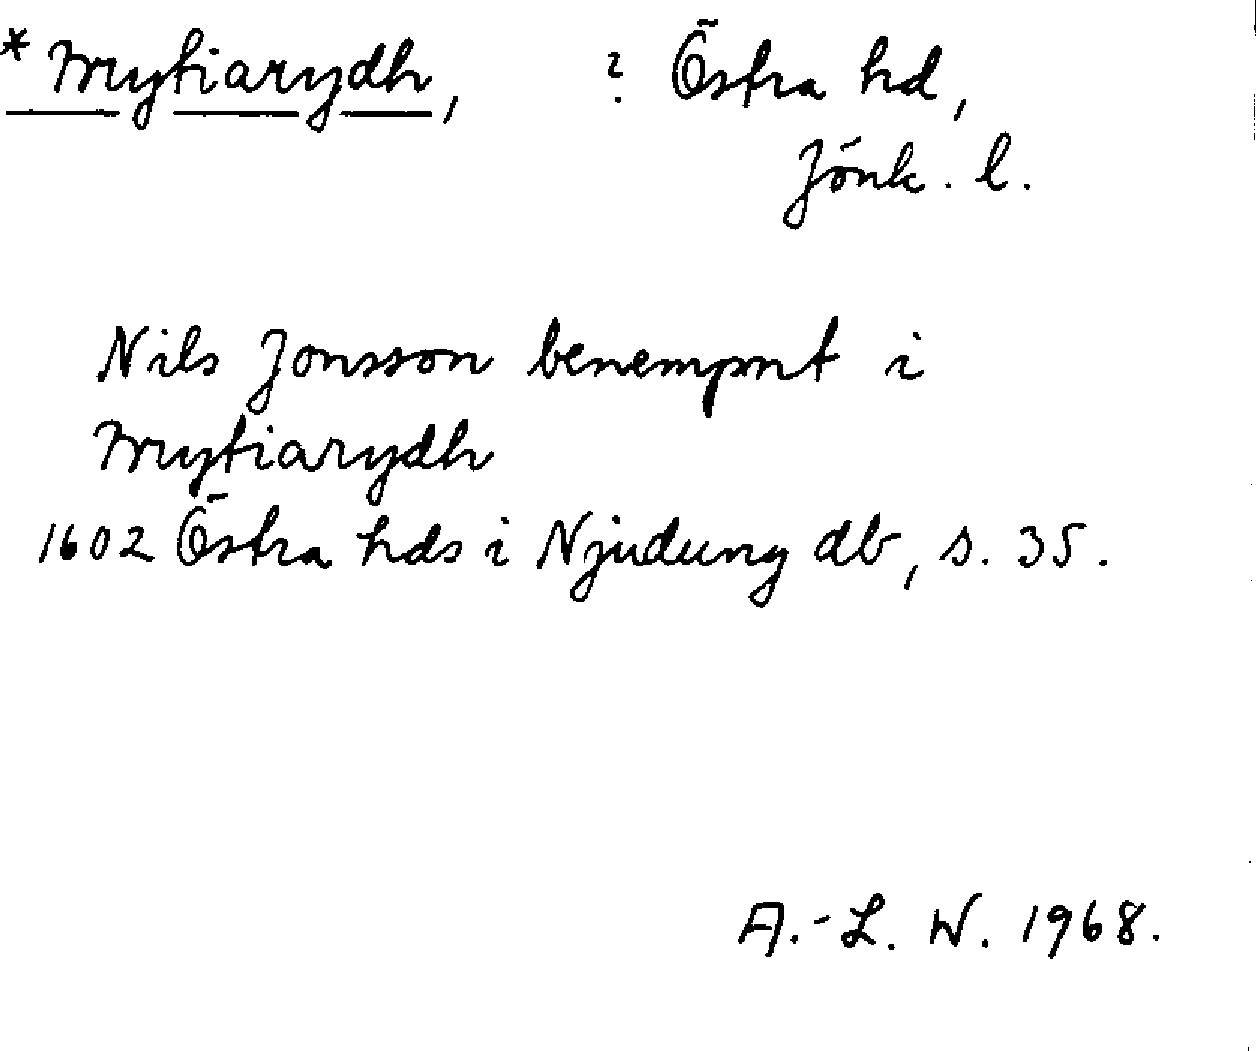 * Mrytiarydh, ? Östra hd,
Jönk. l.
Nils Jonsson benempnt i
Mrytiarydh
1602 Östra hds i Njudung db, s. 35.
A.-L. W. 1968.